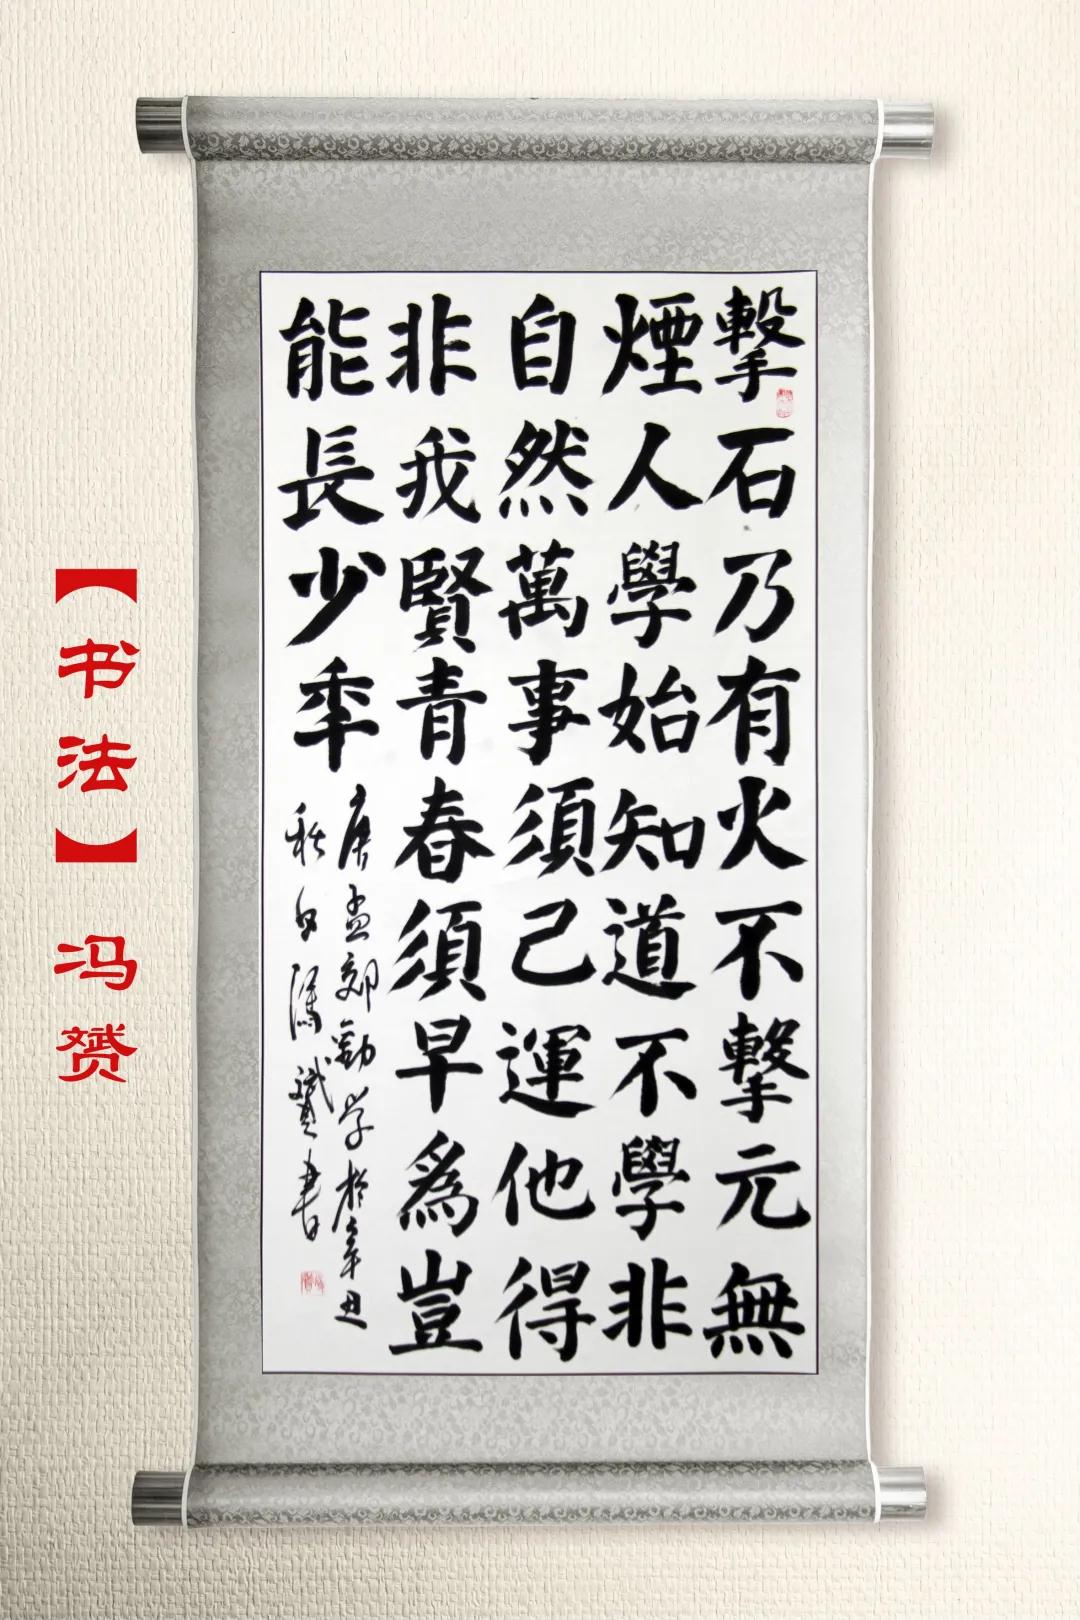 擊石乃有火不擊元無
煙人學始知道不學非
自然萬事須己運他得
非我賢青春須早爲豈
能長少年
唐孟郊勸学於辛丑
秋月馮贇書
【书法】冯赟